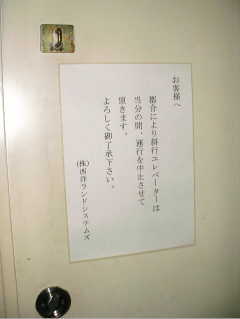 お客様へ
都合により斜行エレベーターは
当分の間、運行を中止させて
頂きます。
よろしく御了承下さい。
(株)西洋ランドシステムズ